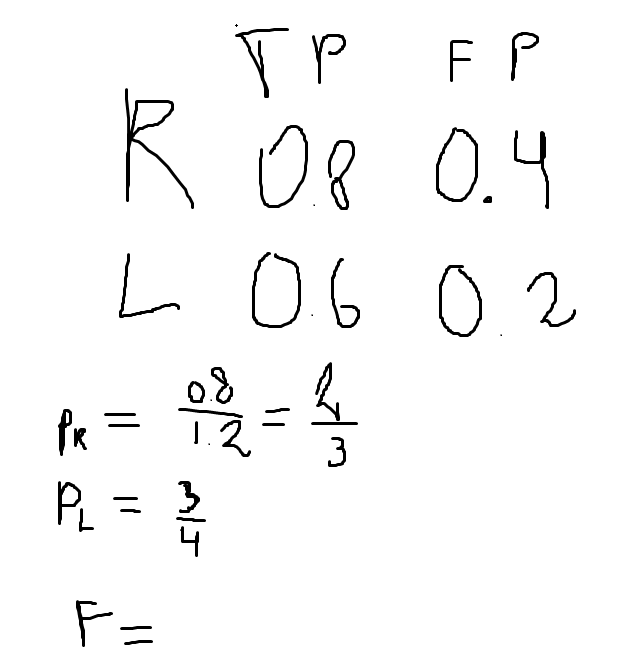 TP FP
R 0.8 0.4
L 0.6 0.2
PR = 0.8/1.2 = 2/3
PL = 3/4
F =